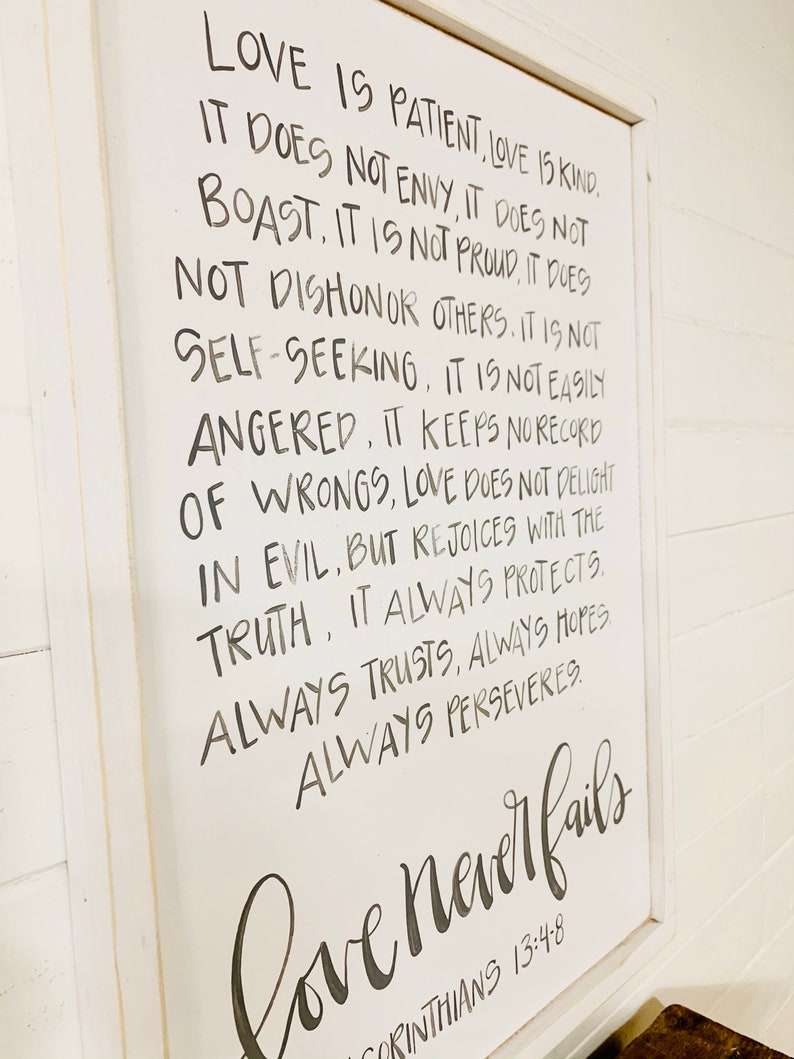 LOVE IS PATIENT, LOVE IS KIND.
IT DOES NOT ENVY, IT DOES NOT
BOAST, IT IS NOT PROUD, IT DOES
NOT DISHONOR OTHERS. IT IS NOT
SELF-SEEKING, IT IS NOT EASILY
ANGERED, IT KEEPS NO RECORD
OF WRONGS, LOVE DOES NOT DELIGHT
IN EVIL, BUT REJOICES WITH THE
TRUTH, IT ALWAYS PROTECTS,
ALWAYS TRUSTS, ALWAYS HOPES,
ALWAYS PERSEVERES.
love never fails
CORINTHIANS 13:4-8